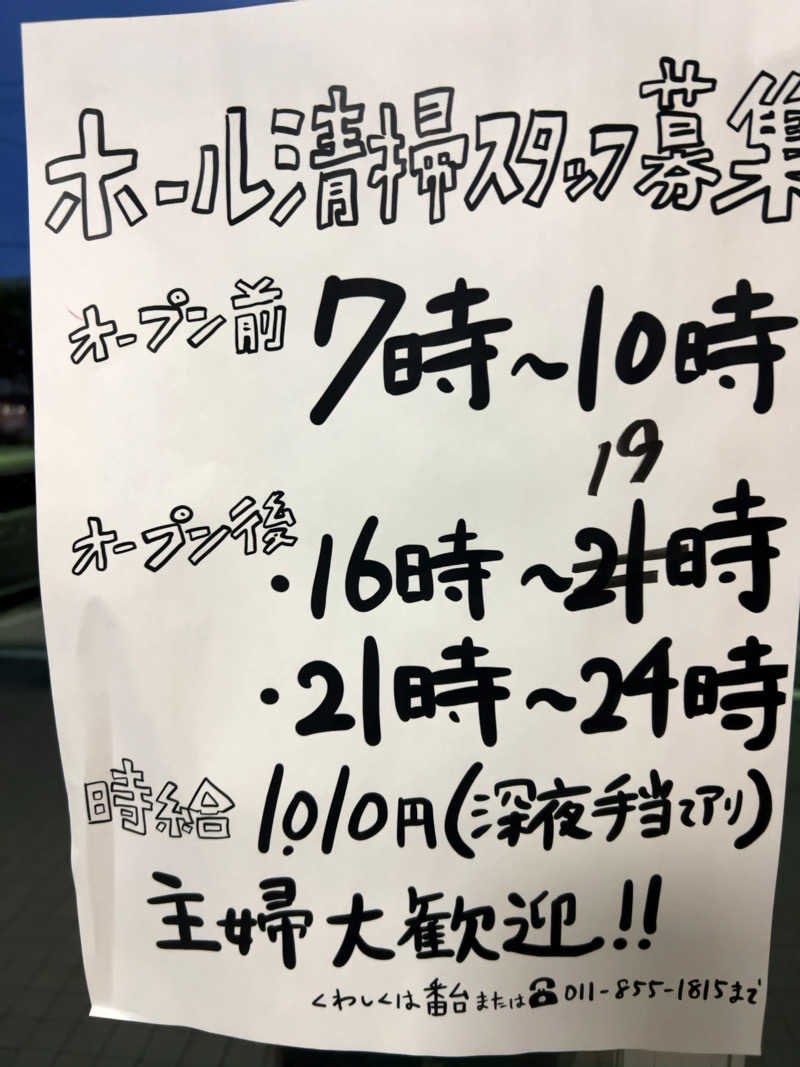 ホール清掃スタッフ募集
オープン前 7時~10時
19
オープン後 ・16時~21時
・21時~24時
時給 1,010円(深夜手当てアリ)
主婦大歓迎!!
くわしくは番台または☎011-855-1815まで